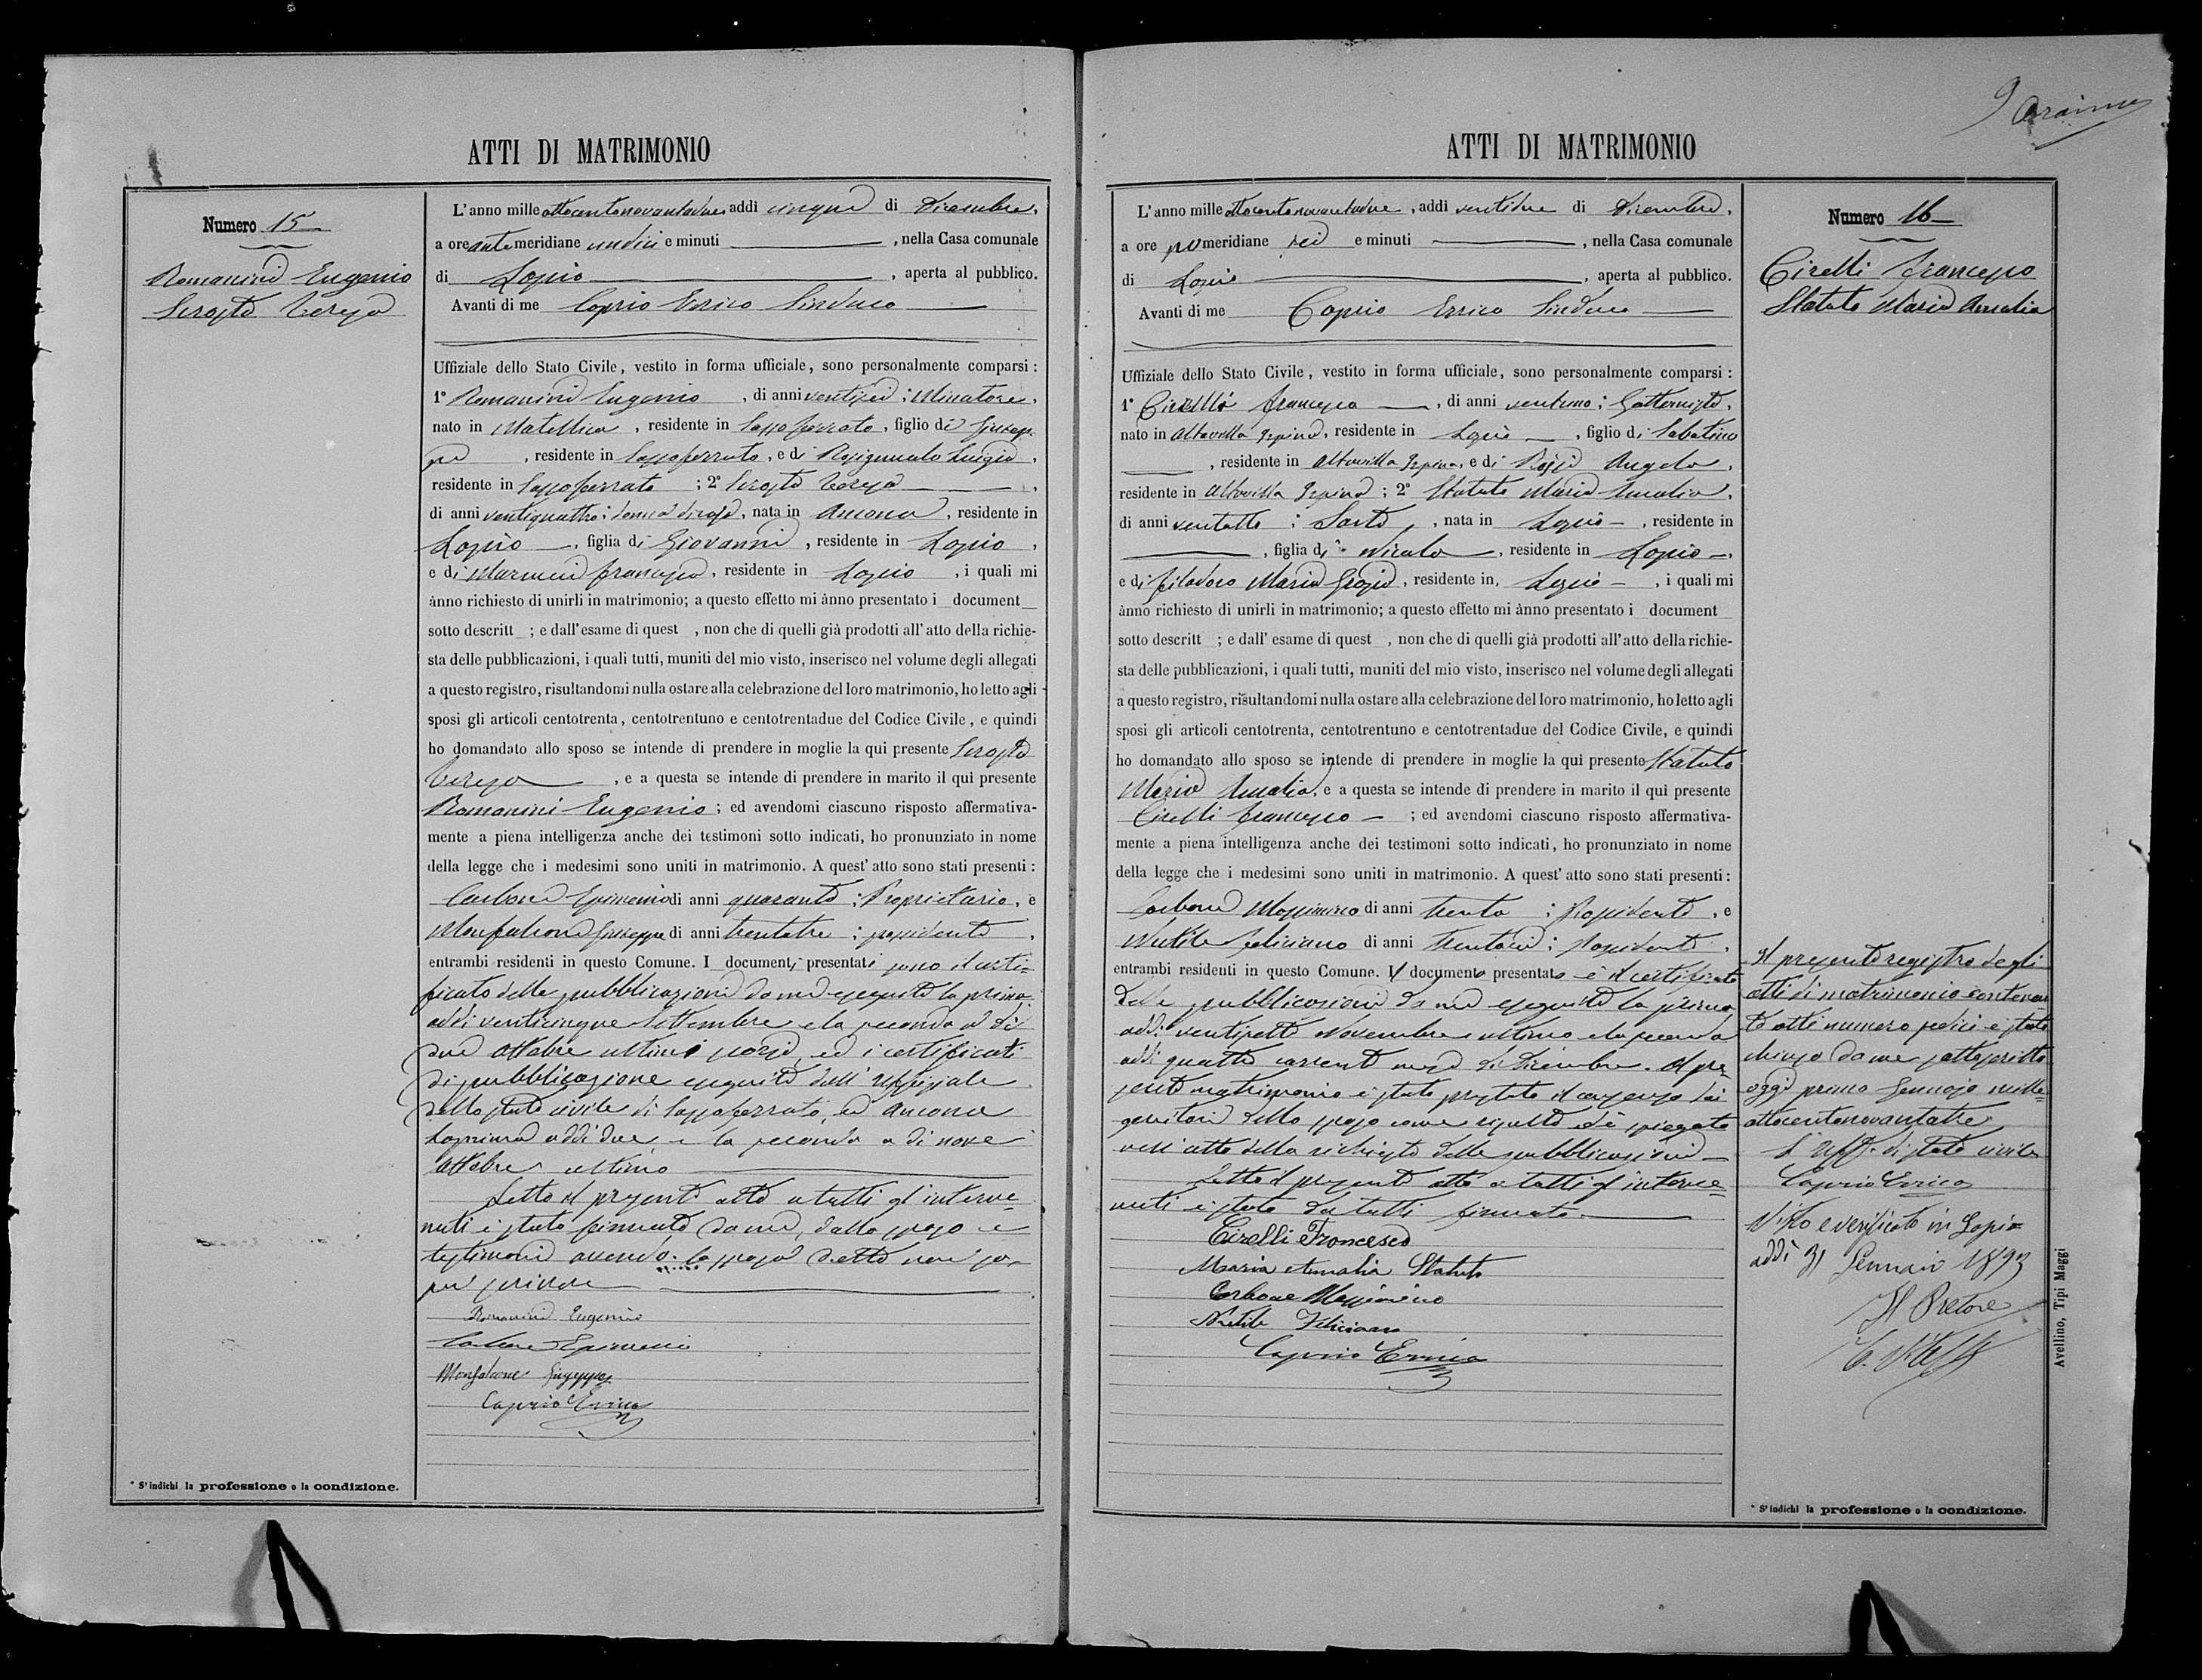 ATTI DI MATRIMONIO
Numero 15
Romanini Eugenio
Serosta Teresa
L'anno mille ottocentonovantadue, addì cinque di Dicembre,
a ore antemeridiane undici e minuti, nella Casa comunale
di Lapio, aperta al pubblico.
Avanti di me Caprio Errico Sindaco
Uffiziale dello Stato Civile, vestito in forma ufficiale, sono personalmente comparsi:
1° Romanini Eugenio, di anni ventisei; Minatore,
nato in Matellica, residente in Sassoferrato, figlio di Giusep-
pe, residente in Sassoferrato, e di Luigia,
residente in Sassoferrato; 2° Serosta Teresa,
di anni ventiquattro; donna di casa, nata in Ancona, residente in
Lapio, figlia di Giovanni, residente in Lapio,
e di Francesca, residente in Lapio, i quali mi
ànno richiesto di unirli in matrimonio; a questo effetto mi ànno presentato i document
sotto descritt ; e dall'esame di quest , non che di quelli già prodotti all'atto della richie-
sta delle pubblicazioni, i quali tutti, muniti del mio visto, inserisco nel volume degli allegati
a questo registro, risultandomi nulla ostare alla celebrazione del loro matrimonio, ho letto agli
sposi gli articoli centotrenta, centotrentuno e centotrentadue del Codice Civile, e quindi
ho domandato allo sposo se intende di prendere in moglie la qui presente Serosta
Teresa, e a questa se intende di prendere in marito il qui presente
Romanini Eugenio; ed avendomi ciascuno risposto affermativa-
mente a piena intelligenza anche dei testimoni sotto indicati, ho pronunziato in nome
della legge che i medesimi sono uniti in matrimonio. A quest'atto sono stati presenti:
Carbone Epimenio di anni quaranta; Proprietario, e
Monfalcone Giuseppe di anni trentatre; possidente,
entrambi residenti in questo Comune. I documenti presentati sono il certi-
ficato delle pubblicazioni da me eseguite la prima
addì venticinque Settembre e la seconda a dì
due Ottobre ultimi scorsi, ed i certificati
di pubblicazione eseguite dall'uffiziale
dello stato civile di Sassoferrato, ed Ancona
la prima addì due e la seconda a dì nove
Ottobre ultimo
Letto il presente atto a tutti gl'interve-
nuti è stato firmato da me, dallo sposo e
testimoni avendo la sposa detto non sa-
per scrivere
Romanini Eugenio
Carbone Epimenio
Monfalcone Giuseppe
Caprio Errico
* S'indichi la professione o la condizione.
ATTI DI MATRIMONIO
L'anno mille ottocentonovantadue, addì ventidue di Dicembre,
a ore pomeridiane sei e minuti, nella Casa comunale
di Lapio, aperta al pubblico.
Avanti di me Caprio Errico Sindaco
Uffiziale dello Stato Civile, vestito in forma ufficiale, sono personalmente comparsi:
1° Cirelli Francesco, di anni ventuno;
nato in Altavilla Irpina, residente in Lapio, figlio di Sabatino
, residente in Altavilla Irpina, e di Angela,
residente in Altavilla Irpina; 2° Statuto Maria Amalia,
di anni ventotto; Sarta, nata in Lapio, residente in
, figlia di Nicola, residente in Lapio,
e di Filadoro Maria Grazia, residente in Lapio, i quali mi
ànno richiesto di unirli in matrimonio; a questo effetto mi ànno presentato i document
sotto descritt ; e dall'esame di quest , non che di quelli già prodotti all'atto della richie-
sta delle pubblicazioni, i quali tutti, muniti del mio visto, inserisco nel volume degli allegati
a questo registro, risultandomi nulla ostare alla celebrazione del loro matrimonio, ho letto agli
sposi gli articoli centotrenta, centotrentuno e centotrentadue del Codice Civile, e quindi
ho domandato allo sposo se intende di prendere in moglie la qui presente Statuto
Maria Amalia, e a questa se intende di prendere in marito il qui presente
Cirelli Francesco; ed avendomi ciascuno risposto affermativa-
mente a piena intelligenza anche dei testimoni sotto indicati, ho pronunziato in nome
della legge che i medesimi sono uniti in matrimonio. A quest'atto sono stati presenti:
Carbone Massimino di anni trenta; Possidente, e
Feliciano di anni; Possidente,
entrambi residenti in questo Comune. Il documento presentato è il certificato
delle pubblicazioni da me eseguite la prima
addì ventisette Novembre ultimo e la seconda
addì quattro corrente mese di Dicembre. Al pre-
sente matrimonio è stato prestato il consenso dai
genitori dello sposo come risulta ed è spiegato
nell'atto della richiesta delle pubblicazioni
Letto il presente atto a tutti gl'interve-
nuti è stato da tutti firmato
Cirelli Francesco
Maria Amalia Statuto
Carbone Massimino
Feliciano
Caprio Errico
Numero 16
Cirelli Francesco
Statuto Maria Amalia
Il presente registro degli
atti di matrimonio contenen
te atti numero sedici è stato
chiuso da me sottoscritto
oggi primo Gennajo mille-
ottocentonovantatre
L'Uff. di stato civile
Caprio Errico
Visto e verificato in Lapio
addì 31 Gennaio 1893
Il Pretore
* S'indichi la professione o la condizione.
Avellino, Tipi Maggi